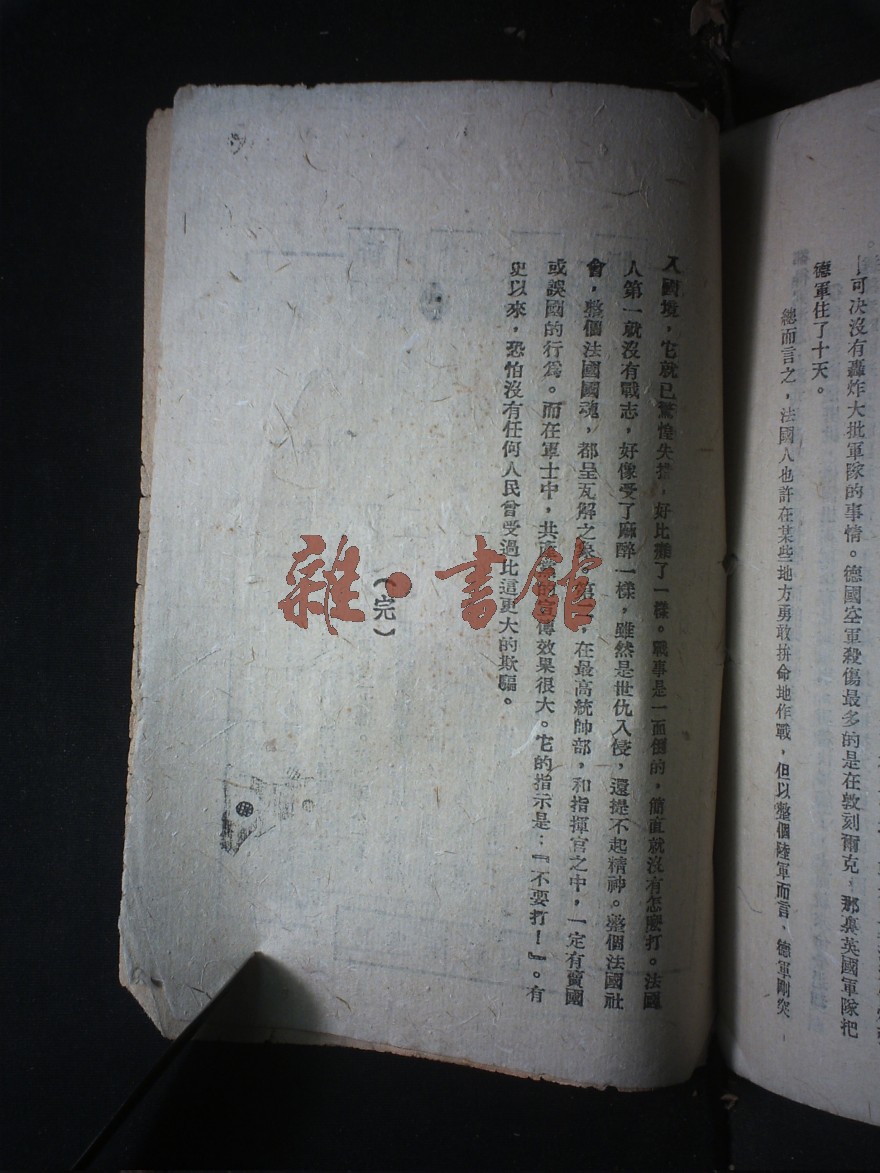 可決沒有轟炸大批軍隊的事情。德國空軍殺傷最多的是在敦刻爾克，那裏英國軍隊把
德軍住了十天。
總而言之，法國人也許在某些地方勇敢拚命地作戰，但以整個陸軍而言，德軍剛突
入國境，它就已驚惶失措，好比攤了一樣。戰事是一面倒的，簡直就沒有怎麼打。法國
人第一就沒有戰志，好像受了麻醉一樣，雖然是世仇入侵，還提不起精神。整個法國社
會，整個法國國魂，都呈瓦解之象。第二，在最高統帥部，和指揮官之中，一定有賣國
或誤國的行為。而在軍士中，共產黨的宣傳效果很大。它的指示是：『不要打！』。有
史以來，恐怕沒有任何人民曾受過比這更大的欺騙。
（完）
雜·書館